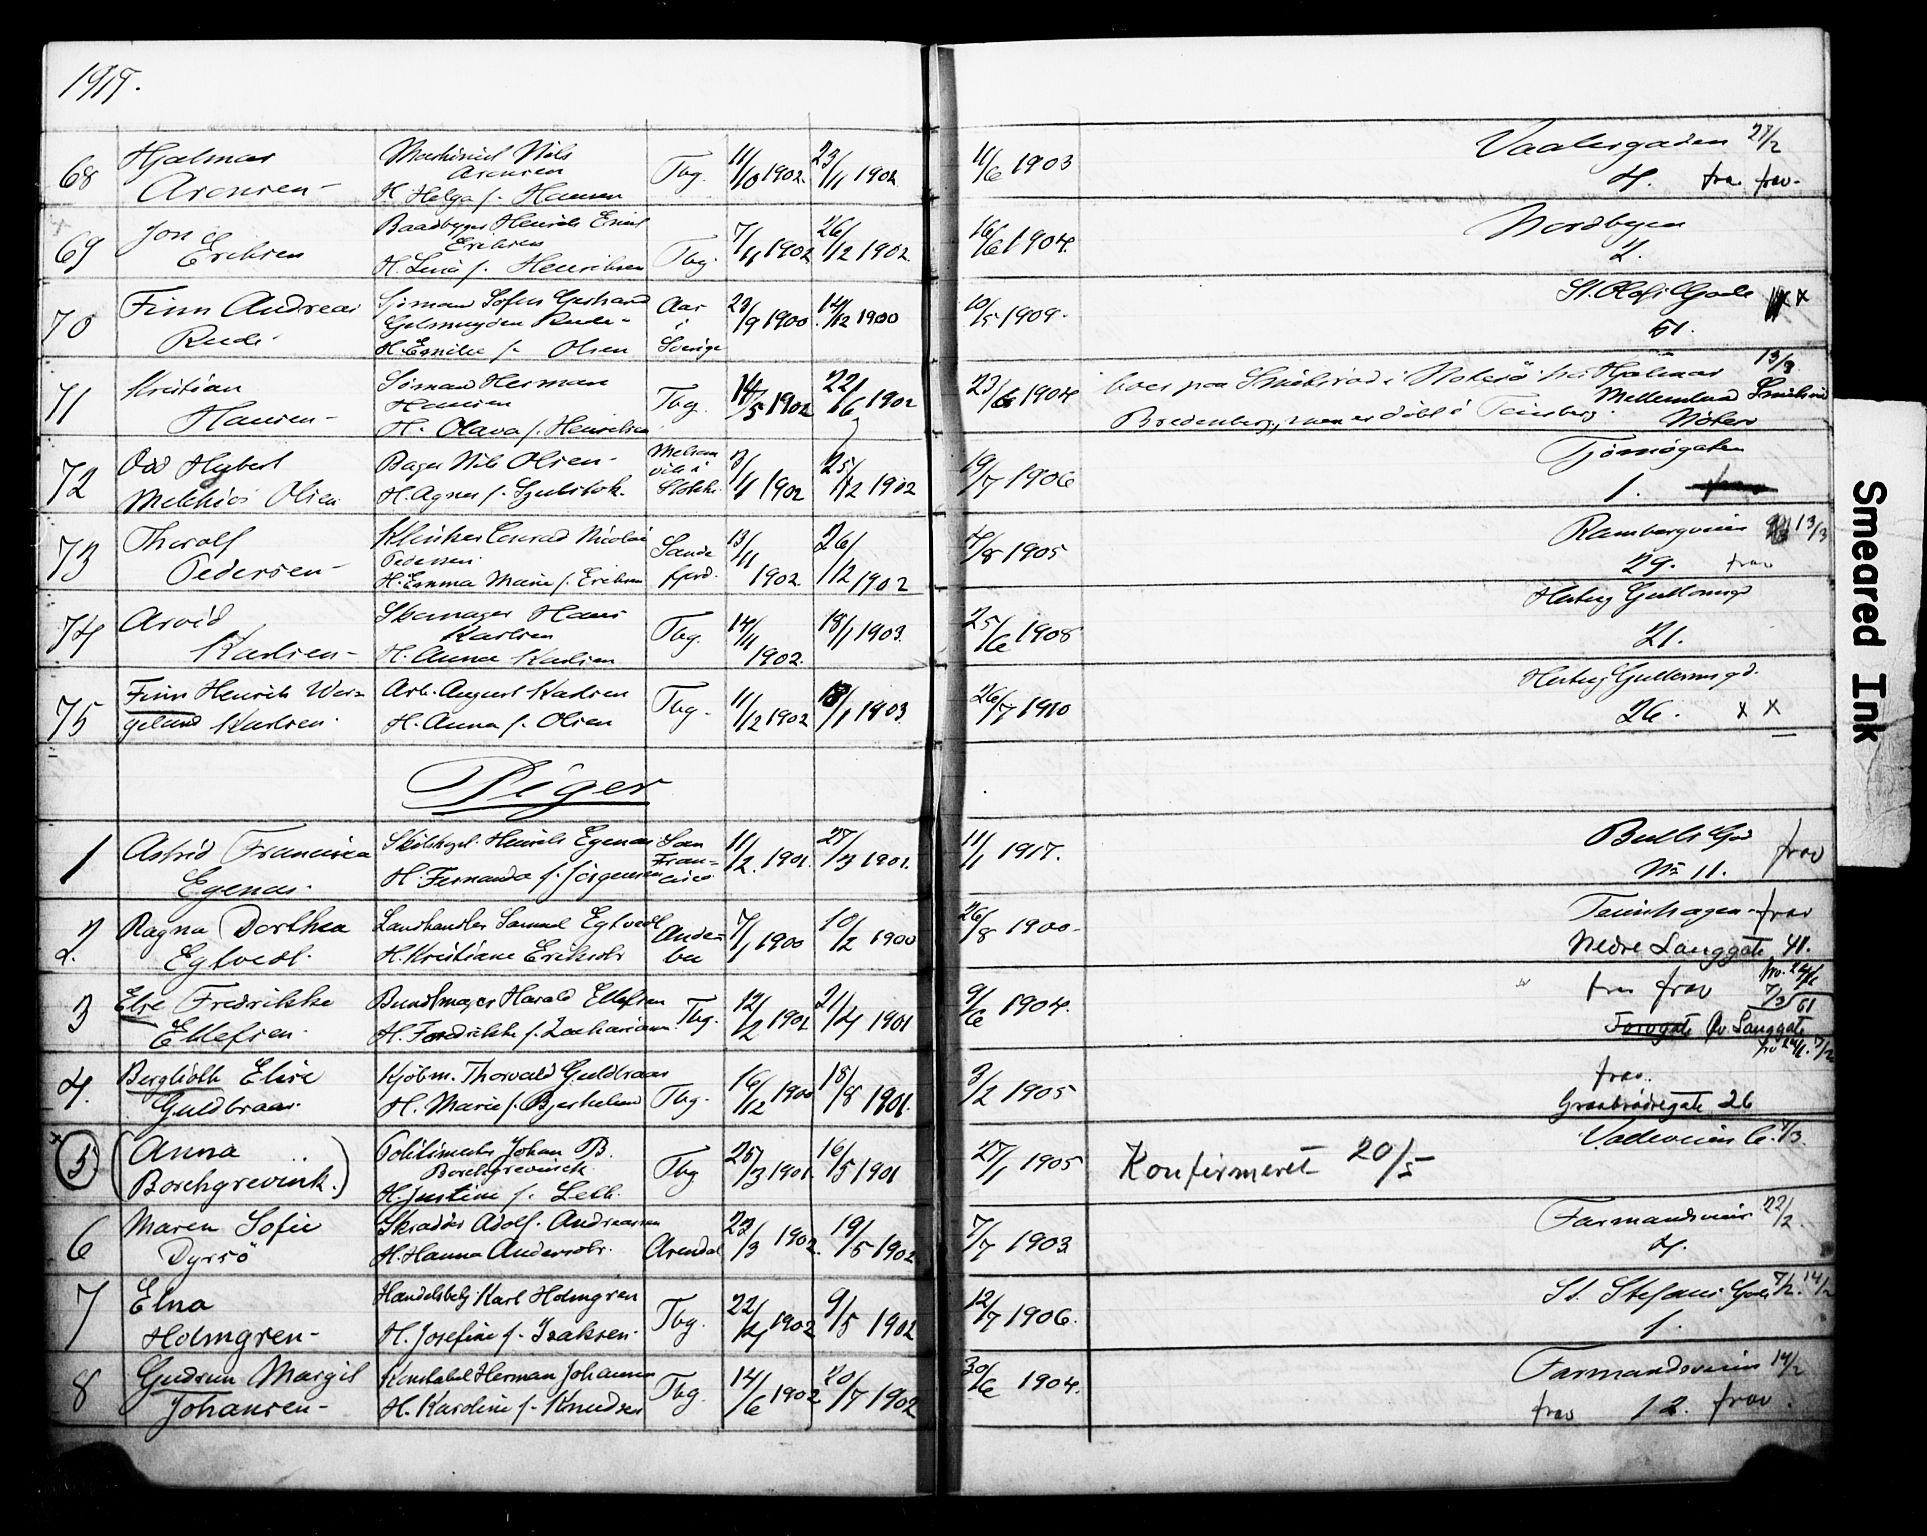 1917.
68 Hjalmar Maskinist Nils Tbg. 11/10 1902. 23/11 1902 11/6 1903 Vaalergaden 27/2
Aronsen - Aronsen 4. frav.
H. Helga f. Hansen
69 Jon Baadbygger Henrik Emil Tbg. 7/11 1902 26/12 1902. 16/6 1904. Nordbyen
Eriksen Eriksen 2.
H. Lina f. Henriksen
70 Finn Andreas Sjömand Sofus Aas i Sverige 23/9 1900. 14/12 1900 10/5 1909. St. Olafs Gade x
Rude Rude - 51.
H. Emilie f. Olsen
71 Kristian Sömand Herman Tbg. 14/5 1902 22/6 1902 23/6 1904 13/3
Hansen - Hansen Bredenberg, men er döbt i Tönsberg. Nöterö
H. Olava f. Henriksen
72 Odd Herbert Bager Nils Olsen - i Stokke 3/11 1902 25/12 1902 19/7 1906 Tjömögaten
Melchior Olsen H. Agnes f. 1.
73 Thorolf Conrad Nicolai Sande fjord. 13/11 1902 26/12 1902 7/8 1905 Rambergveien 13/3
Pedersen - Pedersen 29. frav
H. Emma Marie f. Eriksen
74 Arvid Skomager Hans Tbg. 14/11 1902. 18/1 1903. 25/6 1908 Hertug Guttormsgd
Karlsen - Karlsen 21.
H. Anna Karlsen
75 Finn Henrik Wer= Arb. August Karlsen Tbg. 11/12 1902 18/1 1903. 26/7 1910 Hertug Guttormsgd.
geland Karlsen. H. Anna f. Olsen 26. x x
Piger
1 Astrid Francisca Henrik Egenæs San Fran= cisco 11/2. 1901. 27/3 1901. 11/1 1917. Bulls Gd frav
Egenæs. H. Fernanda f. Jörgensen No 11.
2. Ragna Dorthea Landhandler Samuel Egtvedt Ande= bu 7/1 1900 10/2 1900 26/8 1900. frav
Egtvedt. H. Kristiane Eriksdr Nedre Langgate 41.
3 Else Fredrikke Buntmager Harald Ellefsen Tbg. 12/2 1901 21/4 1901 9/6 1904. frav 7/3 61
Ellefsen. H. Fredrikke f. Zachariasen. Farvegate Öv. Langgate
4. Berglioth Elise Kjöbm. Thorvald Guldbrans Tbg. 16/12 1900 18/8 1901. 3/2 1905 frav. 7/2
Guldbrans. H. Marie f. Bjerkelund Graabrödregate 26
5 (Anna Politimester Johan B. Tbg 25/3 1901. 16/5 1901 27/1 1905 Konfirmeret 20/5 6. 7/3.
Borchgrevink.) Borchgrevinck.
H. Justine f.
6 Maren Sofie Skrædder Adolf Andreassen Arendal 23/3 1902. 19/5 1902 7/7 1903 Farmandsveien 22/2.
Dyrsö H. Hanna Andersdr. 4.
7 Elna Handelsbetj Karl Holmgren Tbg. 22/4 1902 9/5 1902 12/7 1906. St. Stefans Gade 7/2. 14/2
Holmgren - H. Josefine f. Isaksen. 1.
8 Gudrun Margit Konstabel Herman Johansen Tbg. 14/6 1902 20/7 1902 30/6 1904. Farmandsveien 14/2
Johansen - H. Karoline f. Knudsen frav 12. frav.
Smeared Ink